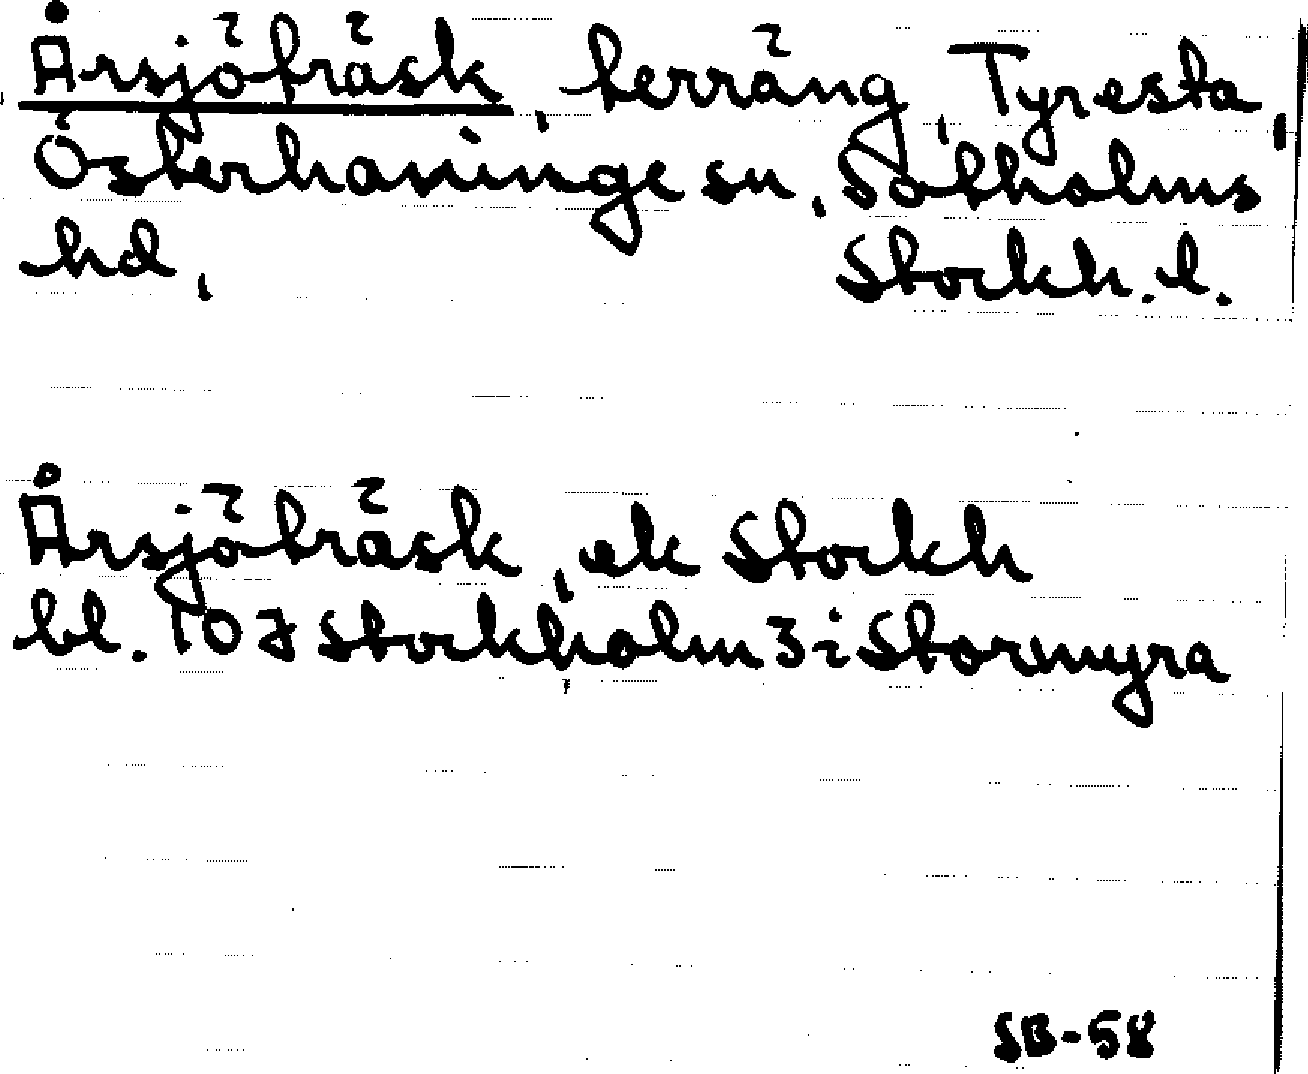 Årsjöträsk, terräng, Tyresta,
Österhaninge sn, Sotholms
hd, Stockh. l.
Årsjöträsk, ek Stockh
bl. 107 Stockholm 3 i Stormyra
SB-58